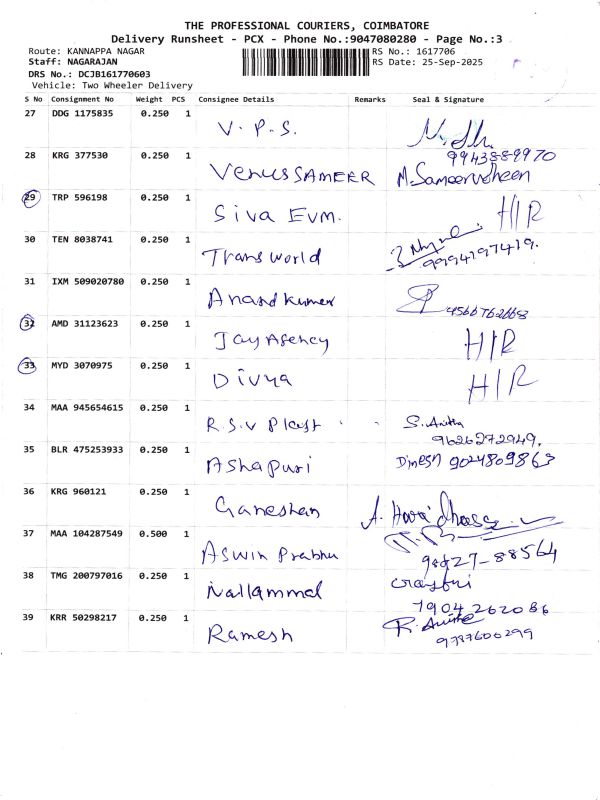 THE PROFESSIONAL COURIERS, COIMBATORE
Delivery Runsheet - PCX - Phone No.:9047080280 - Page No.:3
Route: KANNAPPA NAGAR RS No.: 1617706
Staff: NAGARAJAN RS Date: 25-Sep-2025
DRS No.: DCJB161770603
Vehicle: Two Wheeler Delivery
S No Consignment No Weight PCS Consignee Details Remarks Seal & Signature
27 DDG 1175835 0.250 1 V.P.S.
9943889970
28 KRG 377530 0.250 1 Venus SAMEER
29 TRP 596198 0.250 1 Siva Evm. H/R
30 TEN 8038741 0.250 1 Transworld
9994197419.
31 IXM 509020780 0.250 1 Anandkumar
32 AMD 31123623 0.250 1 Jay Agency H/R
33 MYD 3070975 0.250 1 Divya H/R
34 MAA 945654615 0.250 1 R.S.V Plast S. Anitha
9626272949.
35 BLR 475253933 0.250 1 Ashapuri Dinesh 9024809863
36 KRG 960121 0.250 1 Ganeshan
37 MAA 104287549 0.500 1 Aswin Prabhu
38 TMG 200797016 0.250 1 Nallammal
7904262086
39 KRR 50298217 0.250 1 Ramesh R. Anitha
9787600299